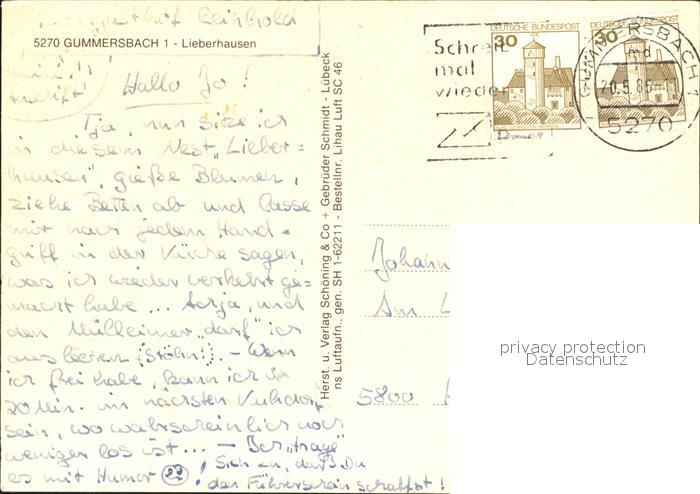 Reinhold
5270 GUMMERSBACH 1 - Lieberhausen
Hallo Jo!
Tja, nun sitze ich
in diesem Nest „Lieber=
hausen", gieße Blumen,
ziehe Betten ab und lasse
mir nach jedem Hand=
griff in der Küche sagen,
was ich wieder verkehrt ge=
macht habe ... Achja, und
den Mülleimer „darf" ich
ausleeren (Stöhn!). - Wenn
ich frei habe, kann ich in
20 Min. im nächsten Kuhdorf
sein, wo wahrscheinlich noch
weniger los ist ... - Ich „trage"
es mit Humor !
Sieh zu, daß Du
den Führerschein schaffst!
Herst. u. Verlag Schöning & Co + Gebrüder Schmidt - Lübeck
ns Luftaufn., gen. SH 1-62211 - Bestellnr. Lihau Luft SC 46
Schreib
mal
wieder
30
DEUTSCHE BUNDESPOST
30
DEUTSCHE BUNDESPOST
GUMMERSBACH 1
md
20.5.85
5270
Johann
Am
5800
privacy protection
Datenschutz